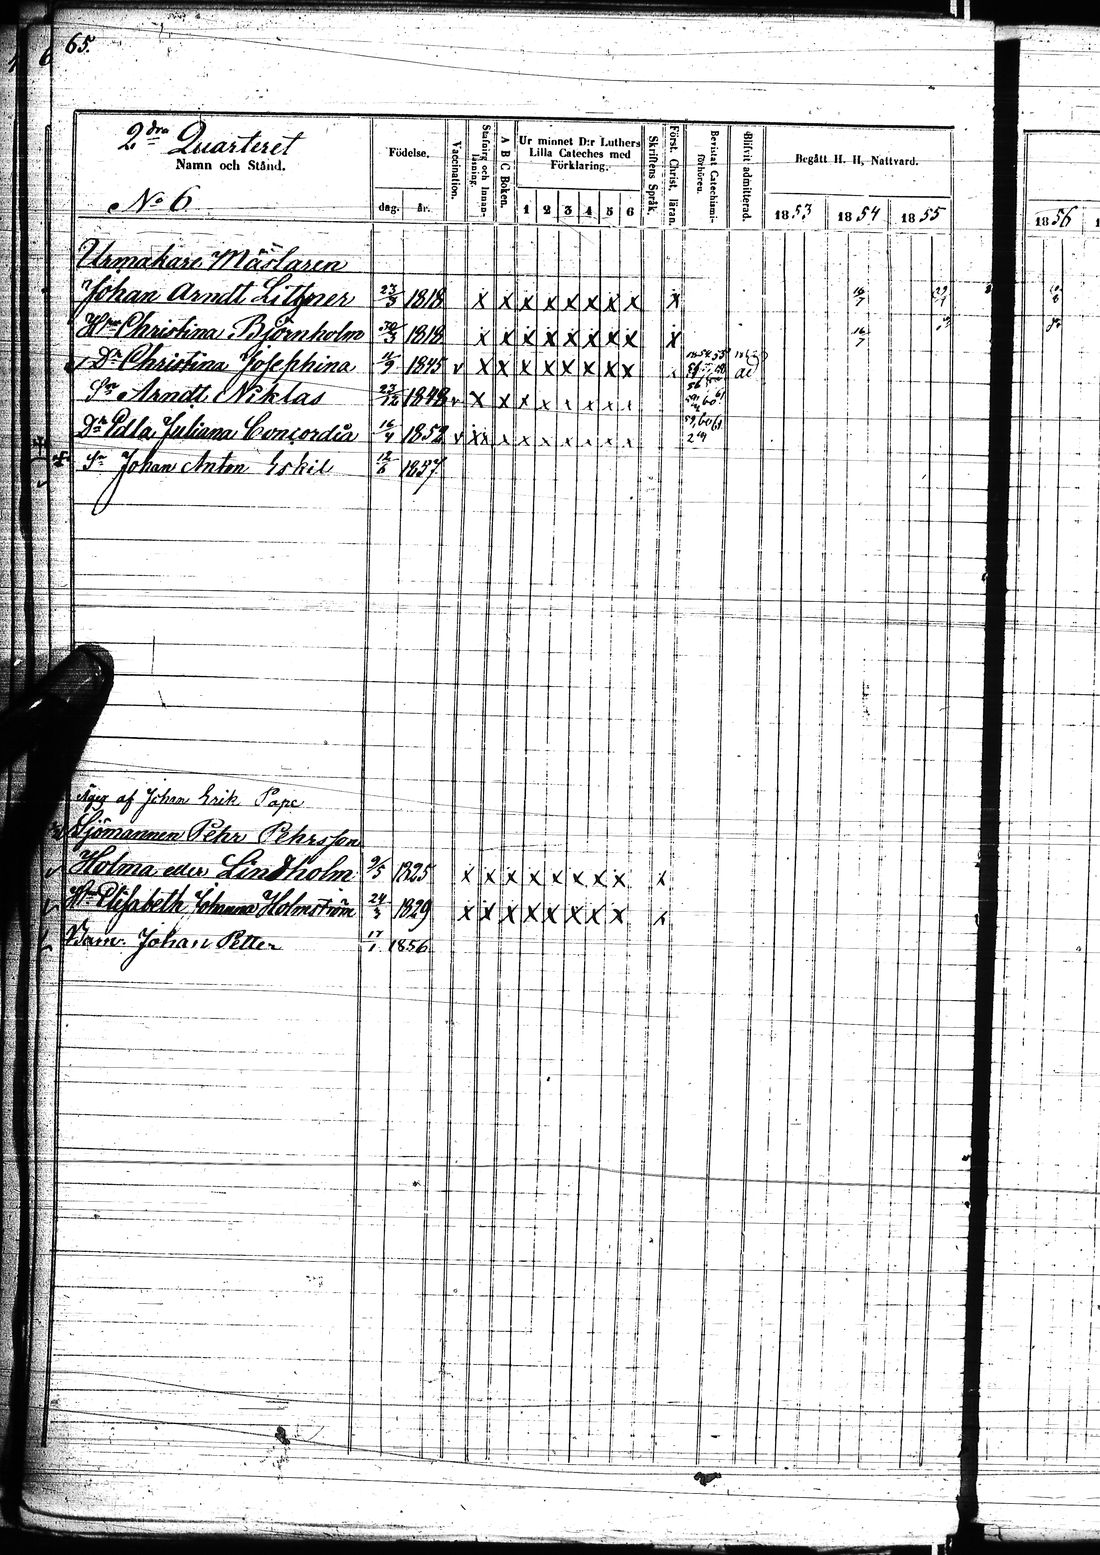 65.
2dra Quarteret
Namn och Stånd.
No 6
Födelse,
dag. år.
Vaccination.
Stafning och Innanläsning.
A B C Boken.
Ur minnet D:r Luthers Lilla Cateches med Förklaring.
1 2 3 4 5 6
Skriftens Språk.
Först. Christ. läran.
Bevistat Catechismiförhören.
Blifvit admitterad.
Begått H. H. Nattvard.
1853 1854 1855 1856
Urmakare Mästaren
Johan Arndt Lithner 23/3 1818 x x x x x x x x x 16/7
Hu Christina Björnholm 30/3 1818 x x x x x x x x x 16/7
Dr Christina Josephina 11/9 1845 v x x x x x x x x
Sn Arndt Niklas 23/12 1848 v x x x x x x x x
Dr Edla Juliana Concordia 16/4 1852 v xx x x x x x x x
Sn Johan Anton Eskil 12/6 1857
äges af Johan Erik Pape
Sjömannen Pehr Pehrsson
Holma eder Lindholm 9/5 1825 x x x x x x x x x
Hu Elisabeth Johanna Holmström 24/3 1829 x x x x x x x x x
Barn: Johan Petter 17/1 1856